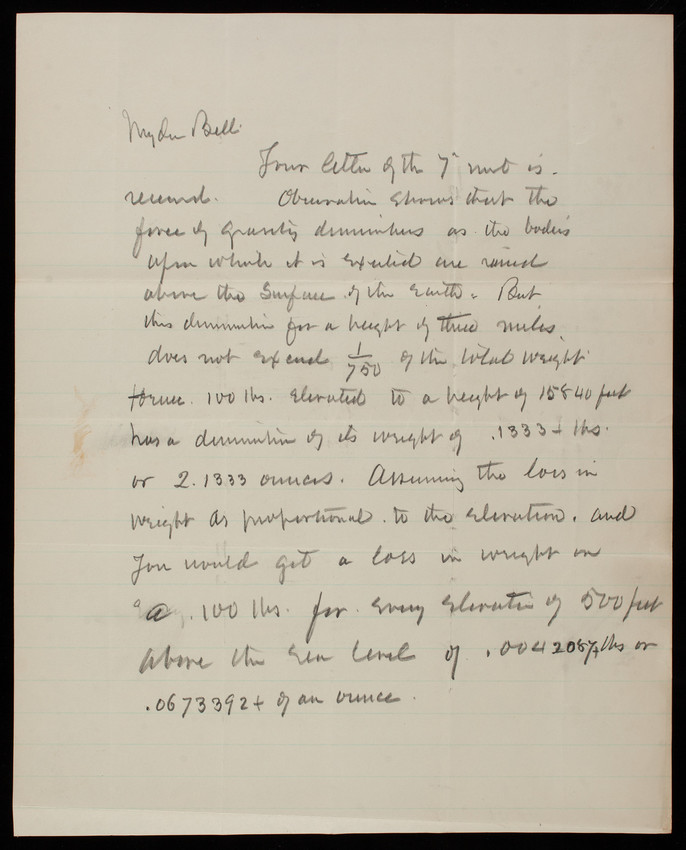 My dear Bell:
Your letter of the 7" inst is
received. Observation shows that the
force of gravity diminishes as the bodies
upon which it is exerted are raised
above the Surface of the Earth. But
this diminution for a height of three miles
does not exceed 1/750 of the total weight
Hence 100 lbs. elevated to a height of 15840 feet
has a diminution of its weight of .1333+ lbs.
or 2.1333 ounces. Assuming the loss in
weight as proportional to the elevation, and
you would get a loss in weight on
a 100 lbs. for every elevation of 500 feet
above the sea level of .0042087+ lbs or
.0673392+ of an ounce.